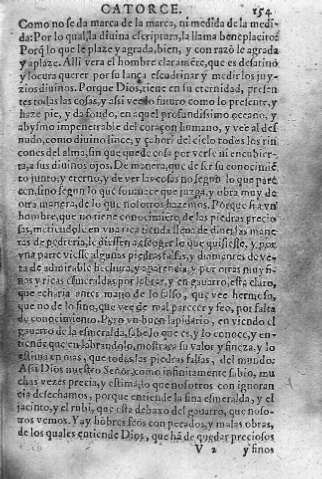 CATORCE. 154
Como no se da marca de la marca, ni medida de la medi-
da: Por lo qual, la diuina escriptura, la llama beneplacito:
Porq̃ lo que le plaze y agrada, bien, y con razõ le agrada
y aplaze. Alli vera el hombre claramẽte, que es desatino
y locura querer por su lança escudriñar y medir los juy-
zios diuinos. Porque Dios, tiene en su eternidad, presen-
tes todas las cosas, y assi vee lo futuro como lo presente, y
haze pie, y da fondo, en aquel profundissimo oceano, y
abysmo impenetrable del coraçon humano, y vee al des
nudo, como diuino lince, y çahori del cielo todos los rin
cones del alma, sin que quede cosa por verse ni encubier-
ta, a sus diuinos ojos. De manera, que de ser su conocimiẽ
to, junto, y eterno, y de ver las cosas no segun lo que pare
cen, sino segun lo que son nace que juzga, y obra muy de
otra manera, de lo que nosotros hazemos. Porque si a vn
hombre, que no tiene conocimiẽto, de las piedras precio
sas, metiendole en vna rica tienda llena de diuersas mane
ras de pedreria, le diessen a escoger lo que quisiesse, y, por
vna parte viesse algunas piedras falsas, y diamantes de ve-
ta de admirable hechura, y aparencia, y por otras muy fi-
nas y ricas esmeraldas por labrar, y en gauarro, esta claro,
que echaria antes mano de lo falso, que vee hermoso,
que no de lo fino, que vee de mal parecer y feo, por falta
de conocimiento. Pero vn buen lapidario, en viendo el
gauarro de la esmeralda, sabe lo que es, y lo conoce, y en-
tiende que en labrandolo, mostrara su valor y fineza, y lo
estima en mas, que todas las piedras falsas, del mundo:
Assi Dios nuestro Señor como infinitamente sabio, mu
chas vezes precia, y estima, lo que nosotros con ignoran
cia desechamos, porque entiende la fina esmeralda, y el
jacinto, y el rubi, que esta debaxo del gauarro, que noso-
tros vemos. Y ay hõbres feos con pecados, y malas obras,
de los quales entiende Dios, que hã de quedar preciosos
V 2 y finos